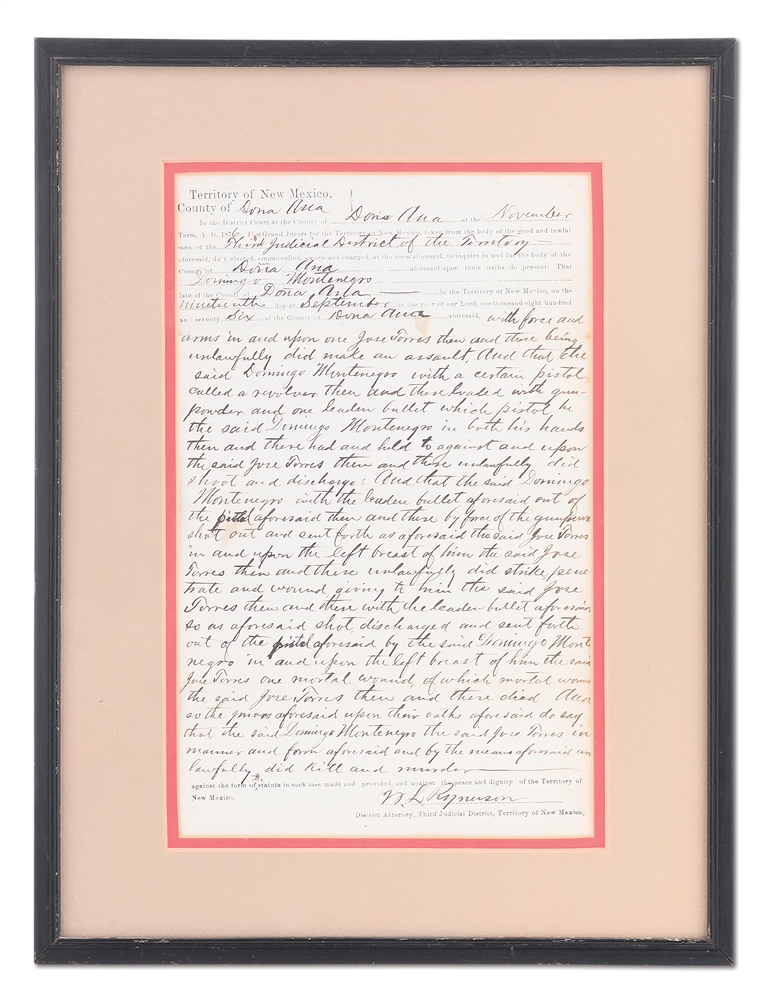 Territory of New Mexico,
County of Dona Ana
In the District Court at the County of Dona Ana at the November
Term, A. D. 1876, The Grand Jurors for the Territory of New Mexico, taken from the body of the good and lawful
men of the Third Judicial District of the Territory
aforesaid, duly elected, empannelled, sworn and charged, at the term aforesaid, to inquire in and for the body of the
County of Doña Ana aforesaid upon their oaths do present: That
Domingo Montenegro
late of the County of Doña Ana in the Territory of New Mexico, on the
nineteenth day of September in the year of our Lord, one thousand eight hundred
and seventy Six at the County of Dona Ana aforesaid, with force and
arms in and upon one Jose Torres then and there being
unlawfully did make an assault And that the
said Domingo Montenegro with a certain pistol
called a revolver then and there loaded with gun-
powder and one leaden bullet which pistol he
the said Domingo Montenegro in both his hands
then and there had and held to against and upon
the said Jose Torres then and there unlawfully did
shoot and discharge; And that the said Domingo
Montenegro with the leaden bullet aforesaid out of
the pistol aforesaid then and there by force of the
shot out and sent forth as aforesaid the said Jose Torres
in and upon the left breast of him the said Jose
Torres then and there unlawfully did strike, pene
trate and wound giving to him the said Jose
Torres then and there with the leaden bullet aforesaid
so as aforesaid shot, discharged and sent forth
out of the pistol aforesaid by the said Domingo Mont
negro in and upon the left breast of him the said
Jose Torres one mortal wound, of which mortal
the said Jose Torres then and there died And
so the jurors aforesaid upon their oaths aforesaid do say
that the said Domingo Montenegro the said Jose Torres in
manner and form aforesaid and by the means aforesaid un
lawfully did kill and murder
against the form of the statute in such case made and provided, and against the peace and dignity of the Territory of
New Mexico. W. L. Rynerson
District Attorney, Third Judicial District, Territory of New Mexico,